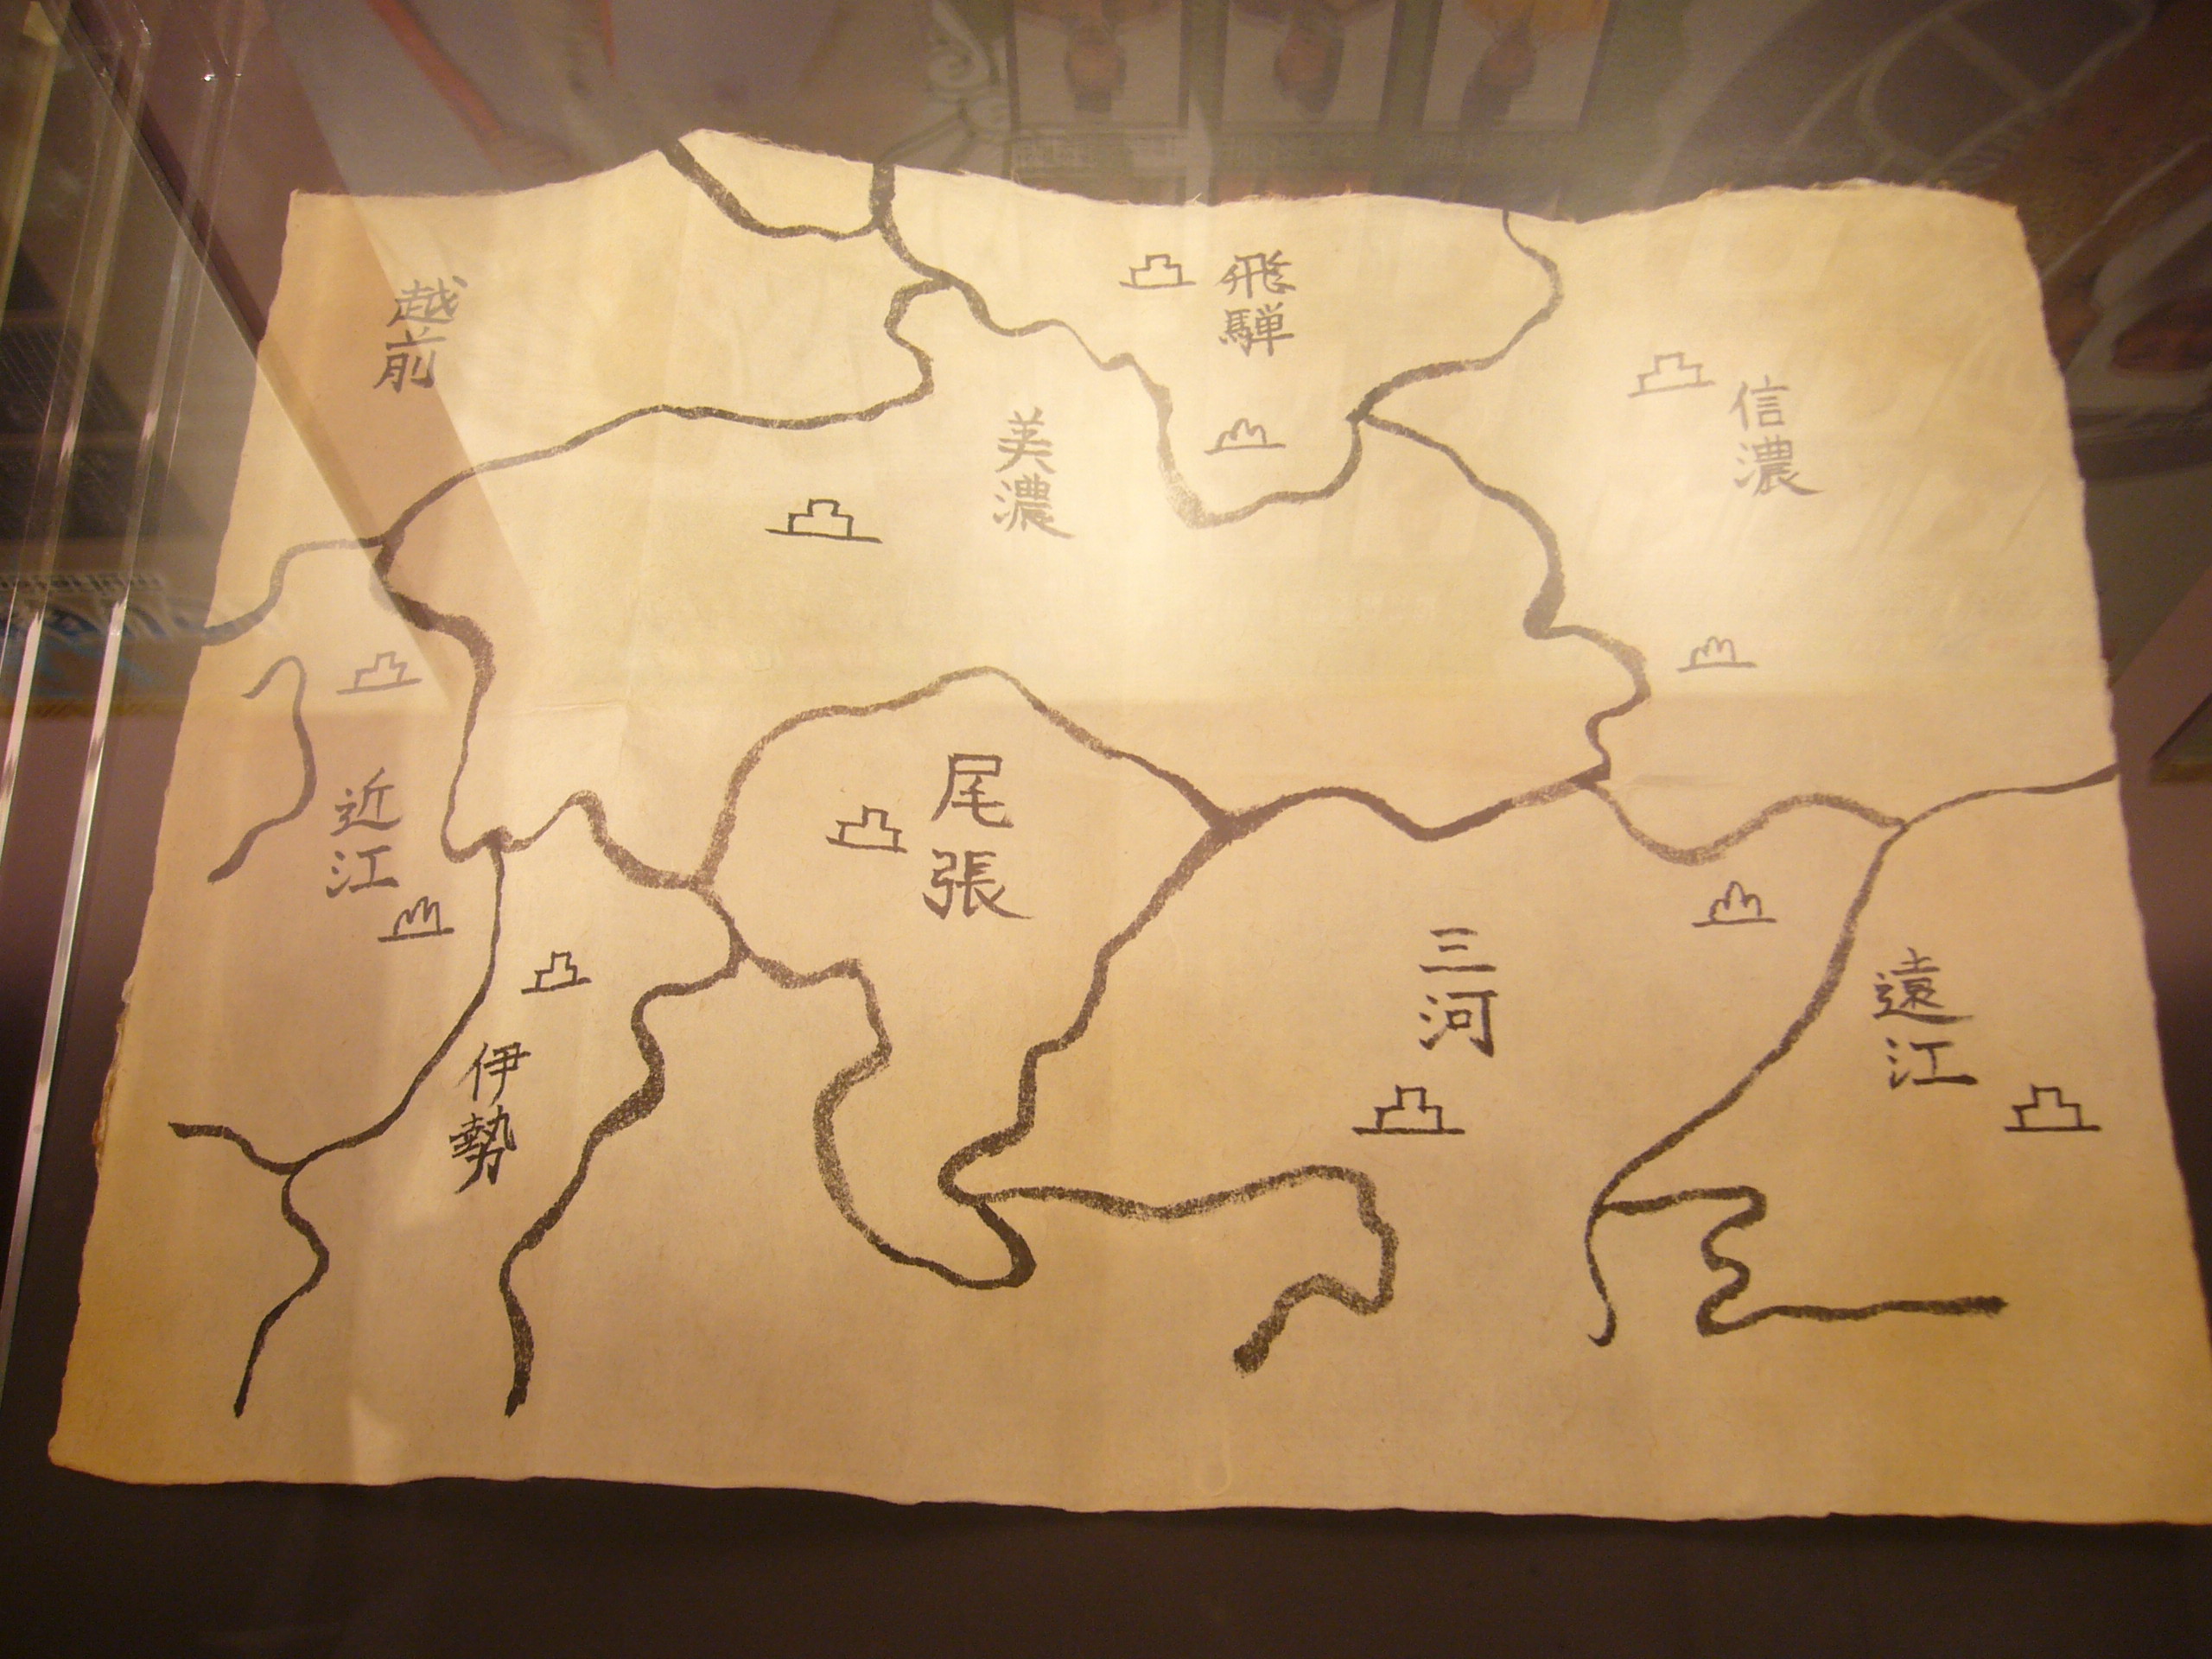 越前
飛騨
信濃
美濃
近江
尾張
三河
遠江
伊勢